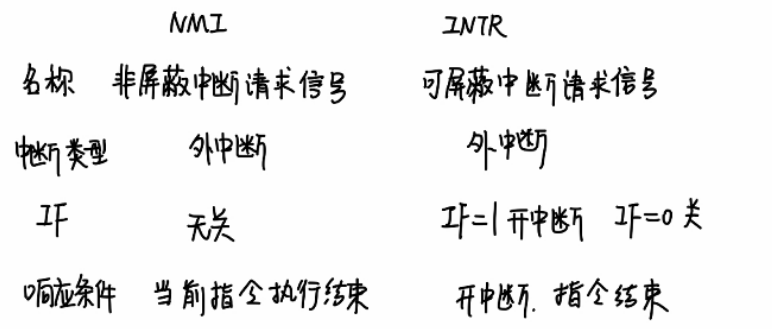 NMI INTR
名称 非屏蔽中断请求信号 可屏蔽中断请求信号
中断类型 外中断 外中断
IF 无关 IF=1开中断 IF=0关
响应条件 当前指令执行结束 开中断. 指令结束